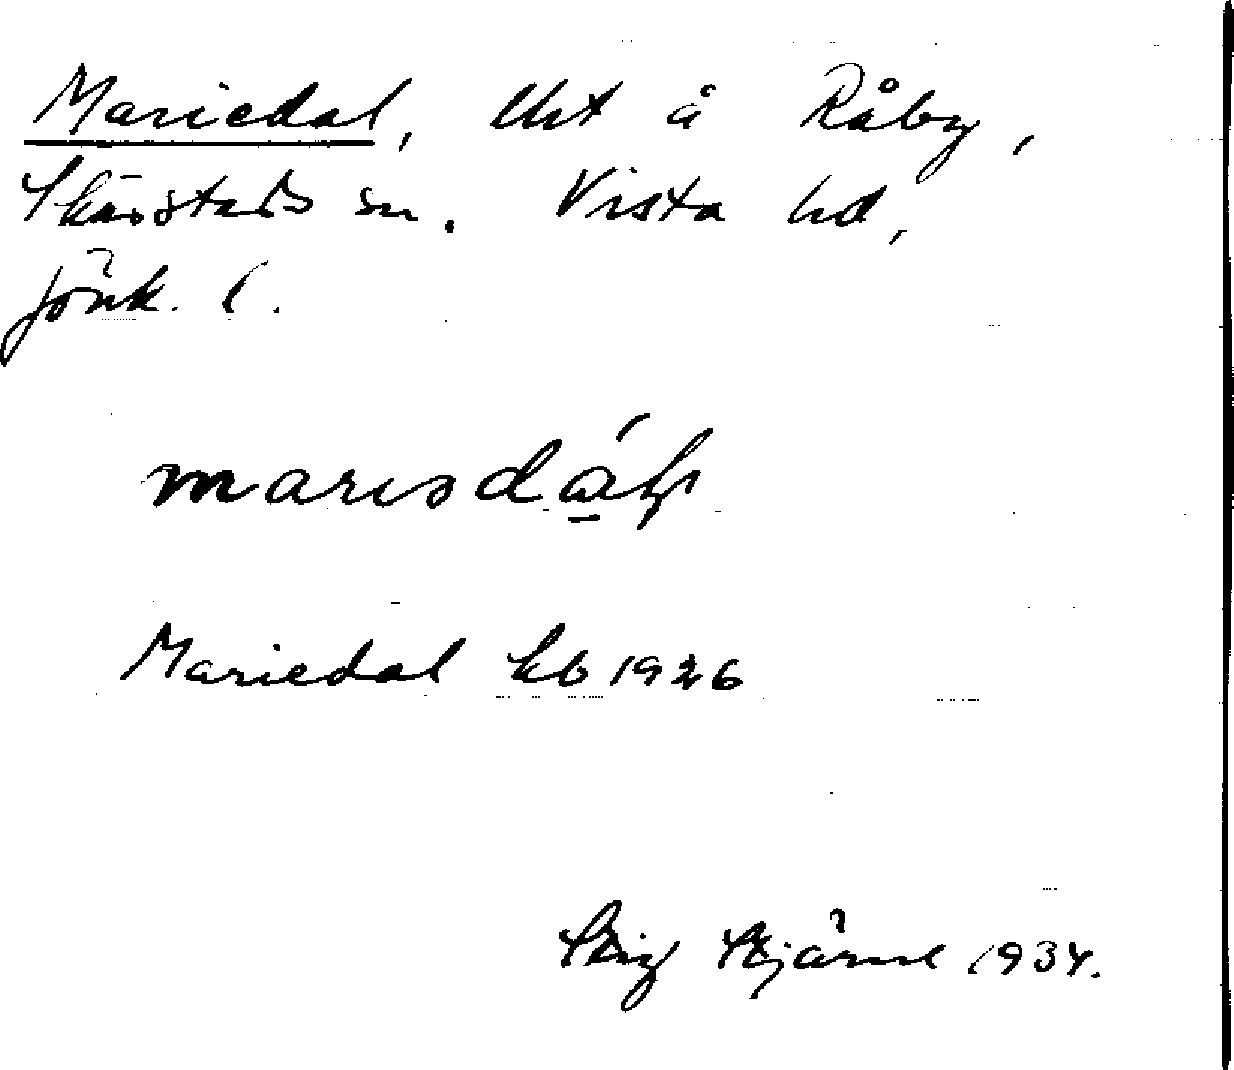 Mariedal, lht å Råby,
Skärstads sn. Vista hd,
Jönk. l.
marısdál
Mariedal kb 1926
Stig Stjärne 1934.